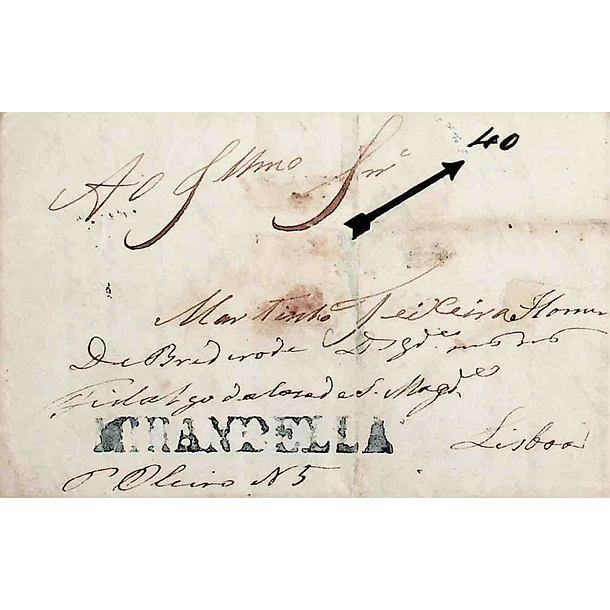 40
Ao Illmo Snr.
Martinho Teixeira Homem
De Brederode Dgde
Fidalgo da Casa de S. Magde
MIRANDELLA
Lisboa
Pº Oleiro N 5